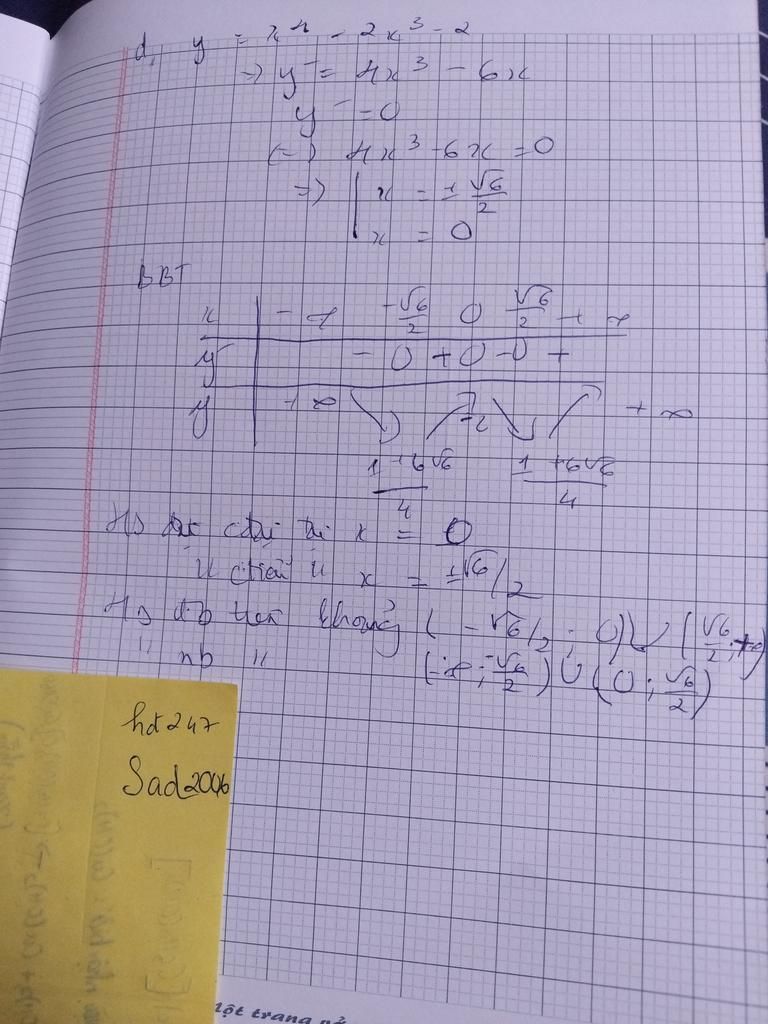 d, y = x⁴ - 2x³ - 2
=> y' = 4x³ - 6x
y' = 0
(=) 4x³ - 6x = 0
=> x = ±√6/2
x = 0
BBT
x - ∞ -√6/2 0 √6/2 + ∞
y' - 0 + 0 - 0 +
y +∞ -2 + ∞
HS đạt cđại tại x = 0
" ctiểu " x = ±√6/2
HS đb trên khoảng (-√6/2; 0) ∪ (√6/2; +∞)
" nb " (-∞; -√6/2) ∪ (0; √6/2)
hd247
Sad2006
một trang vở